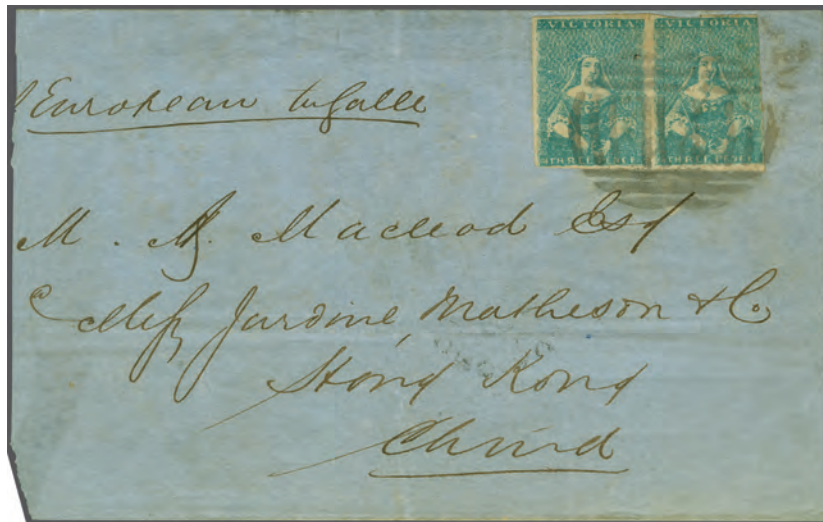 VICTORIA VICTORIA
THREE PENCE THREE PENCE
European to Galle
M. A. Macleod Esq
Jardine Matheson & Co
Hong Kong
China